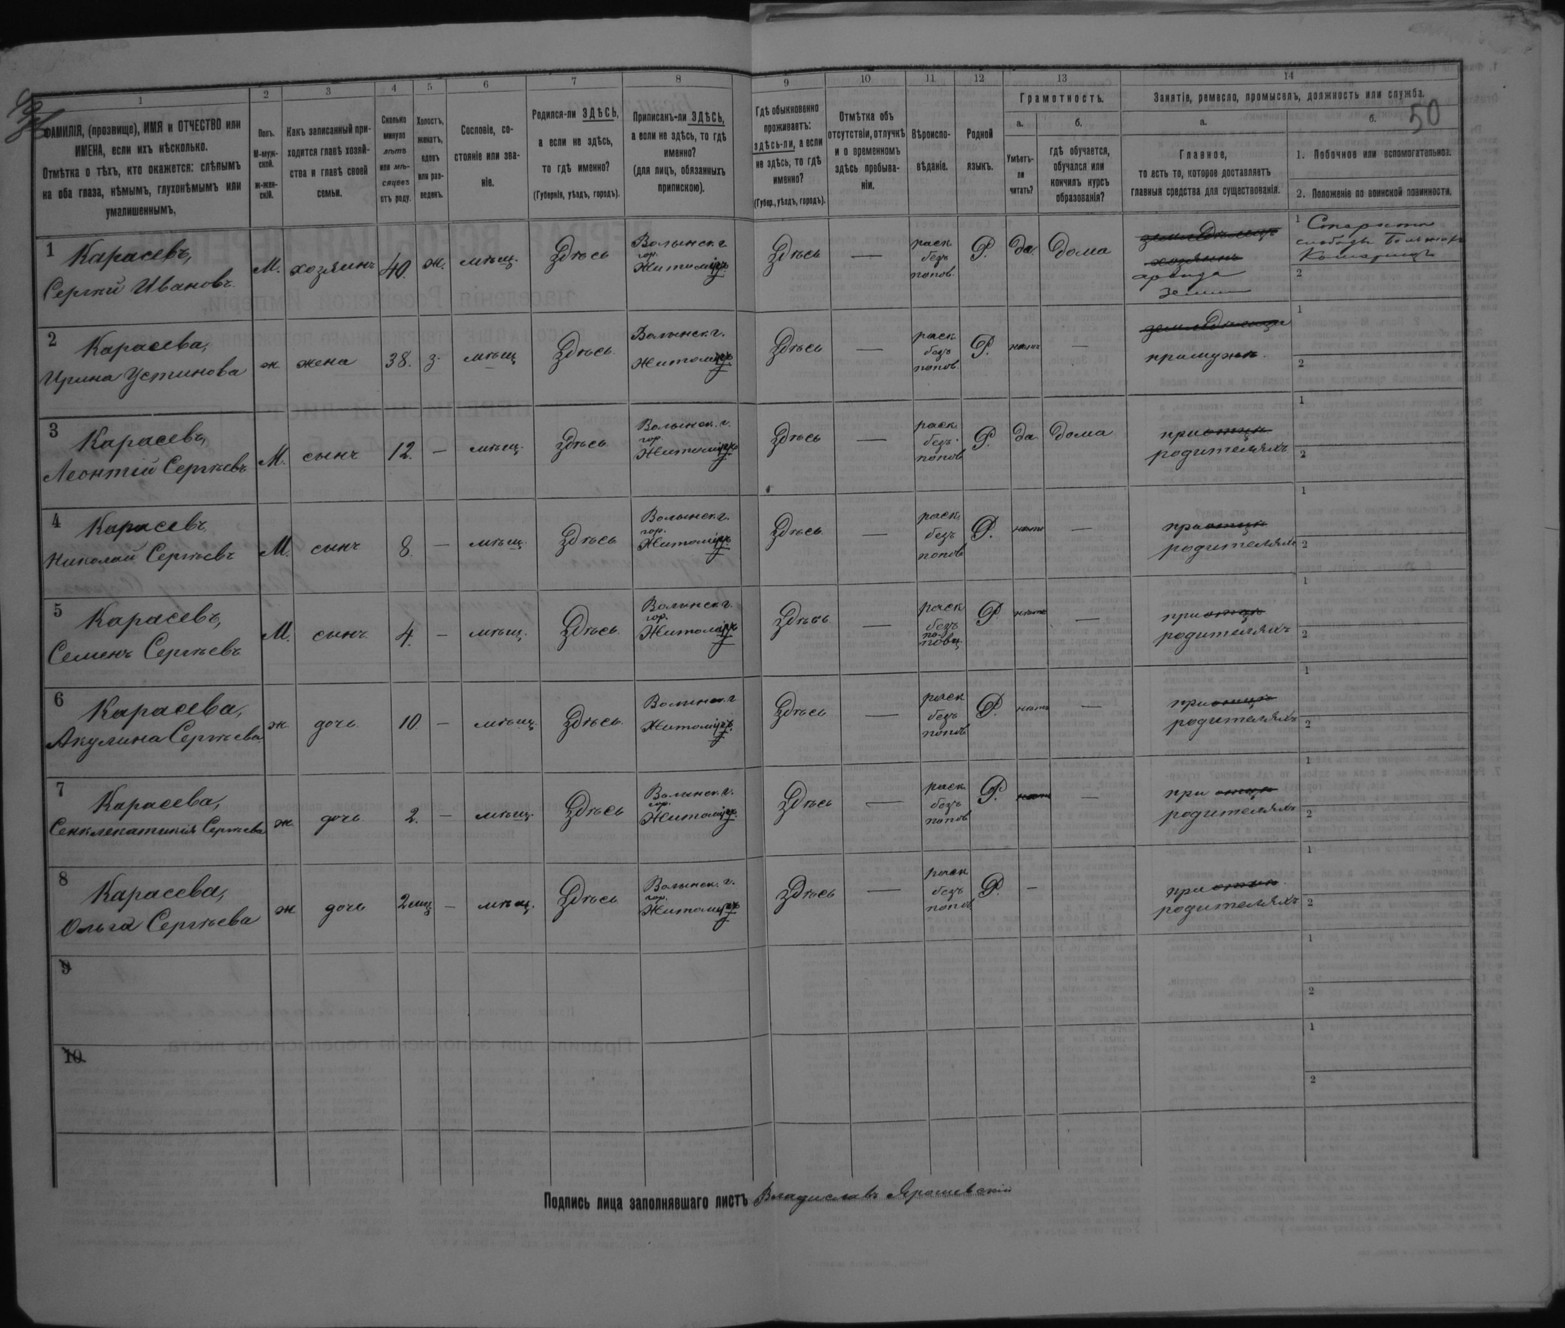 50
1 2 3 4 5 6 7 8 9 10 11 12 13 14
ФАМИЛІЯ, (прозвище), ИМЯ и ОТЧЕСТВО или
ИМЕНА, если ихъ нѣсколько.
Отмѣтка о тѣхъ, кто окажется: слѣпымъ
на оба глаза, нѣмымъ, глухонѣмымъ или
умалишеннымъ.
Полъ.
М-муж-
ской.
ж-жен-
скій.
Какъ записанный при-
ходится главѣ хозяй-
ства и главѣ своей
семьи.
Сколько
минуло
лѣтъ
или мѣ-
сяцевъ
отъ роду.
Холостъ,
женатъ,
вдовъ
или раз-
веденъ.
Сословіе, со-
стояніе или зва-
ніе.
Родился-ли ЗДѢСЬ,
а если не здѣсь,
то гдѣ именно?
(Губернія, уѣздъ, городъ).
Приписанъ-ли ЗДѢСЬ,
а если не здѣсь, то гдѣ
именно?
(для лицъ, обязанныхъ
припискою).
Гдѣ обыкновенно
проживаетъ:
здѣсь-ли, а если
не здѣсь, то гдѣ
именно?
(Губер., уѣздъ, городъ).
Отмѣтка объ
отсутствіи, отлучкѣ
и о временномъ
здѣсь пребыва-
ніи.
Вѣроиспо-
вѣданіе.
Родной
языкъ.
Грамотность.
а.
Умѣетъ-
ли
читать?
б.
гдѣ обучается,
обучался или
кончилъ курсъ
образованія?
Занятіе, ремесло, промыселъ, должность или служба.
а.
Главное,
то есть то, которое доставляетъ
главныя средства для существованія.
б.
1. Побочное или вспомогательное.
2. Положеніе по воинской повинности.
1 Карасевъ,
Сергѣй Ивановъ
М. хозяинъ 40 ж. мѣщ. Здѣсь
Волынск г.
гор.
Житоміръ
Здѣсь —
раск
безъ
поповъ
Р. да дома
земледѣлецъ
хозяинъ
аренда
земли
1
Староста
слободы
2
2 Карасева,
Ирина Устинова
ж жена 38. з. мѣщ Здѣсь
Волынск. г.
Житоміръ
Здѣсь —
раск
безъ
попов
Р. нѣтъ —
при мужѣ
1
2
3 Карасевъ,
Леонтій Сергѣевъ
М. сынъ 12. — мѣщ. Здѣсь
Волынск. г.
гор.
Житоміръ
Здѣсь —
раск
безъ
попов
Р. да дома
при отцѣ
родителяхъ
1
2
4 Карасевъ
Николай Сергѣевъ
М. сынъ 8 — мѣщ. Здѣсь
Волынск г.
гор.
Житоміръ
Здѣсь —
раск.
безъ
попов
Р. нѣтъ —
при отцѣ
родителяхъ
1
2
5 Карасевъ,
Семенъ Сергѣевъ
М. сынъ 4. — мѣщ. Здѣсь
Волынск г.
гор.
Житоміръ
Здѣсь —
раск
безъ
Р. нѣтъ —
при отцѣ
родителяхъ
1
2
6 Карасева,
Акулина Сергѣева
ж дочь 10 — мѣщ Здѣсь
Волынск г
Житоміръ
Здѣсь —
раск
безъ
попов
Р. нѣтъ —
при отцѣ
родителяхъ
1
2
7 Карасева,
Сергѣева
ж дочь 2. — мѣщ. Здѣсь
Волынск. г.
гор.
Житоміръ
Здѣсь —
раск
безъ
попов
Р. нѣтъ —
при отцѣ
родителяхъ
1
2
8 Карасева,
Ольга Сергѣева
ж дочь 2 мц — мѣщ. Здѣсь
Волынск. г.
гор.
Житоміръ
Здѣсь —
раск
безъ
попов
Р. —
при отцѣ
родителяхъ
1
2
9
1
2
10
1
2
Подпись лица заполнявшаго листъ Владиславъ Ярошевскій